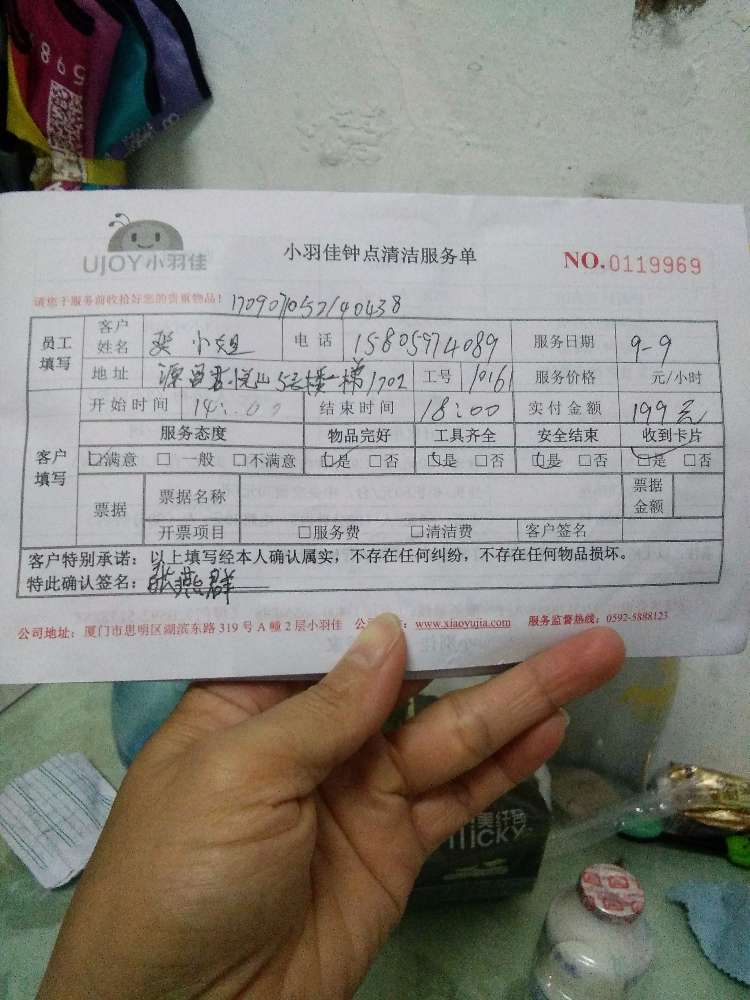 UJOY小羽佳
小羽佳钟点清洁服务单
NO.0119969
请您于服务前收拾好您的贵重物品！
员工填写 客户姓名 张小姐 电话 15805974089 服务日期 9-9
地址 1702 工号 10161 服务价格 元/小时
开始时间 14:00 结束时间 18:00 实付金额 199元
客户填写 服务态度 物品完好 工具齐全 安全结束 收到卡片
☑满意 □一般 □不满意 ☑是 □否 ☑是 □否 ☑是 □否 ☑是 □否
票据 票据名称 票据金额
开票项目 □服务费 □清洁费 客户签名
客户特别承诺：以上填写经本人确认属实，不存在任何纠纷，不存在任何物品损坏。
特此确认签名：张燕群
公司地址：厦门市思明区湖滨东路319号A幢2层小羽佳 www.xiaoyujia.com 服务监督热线：0592-5888123